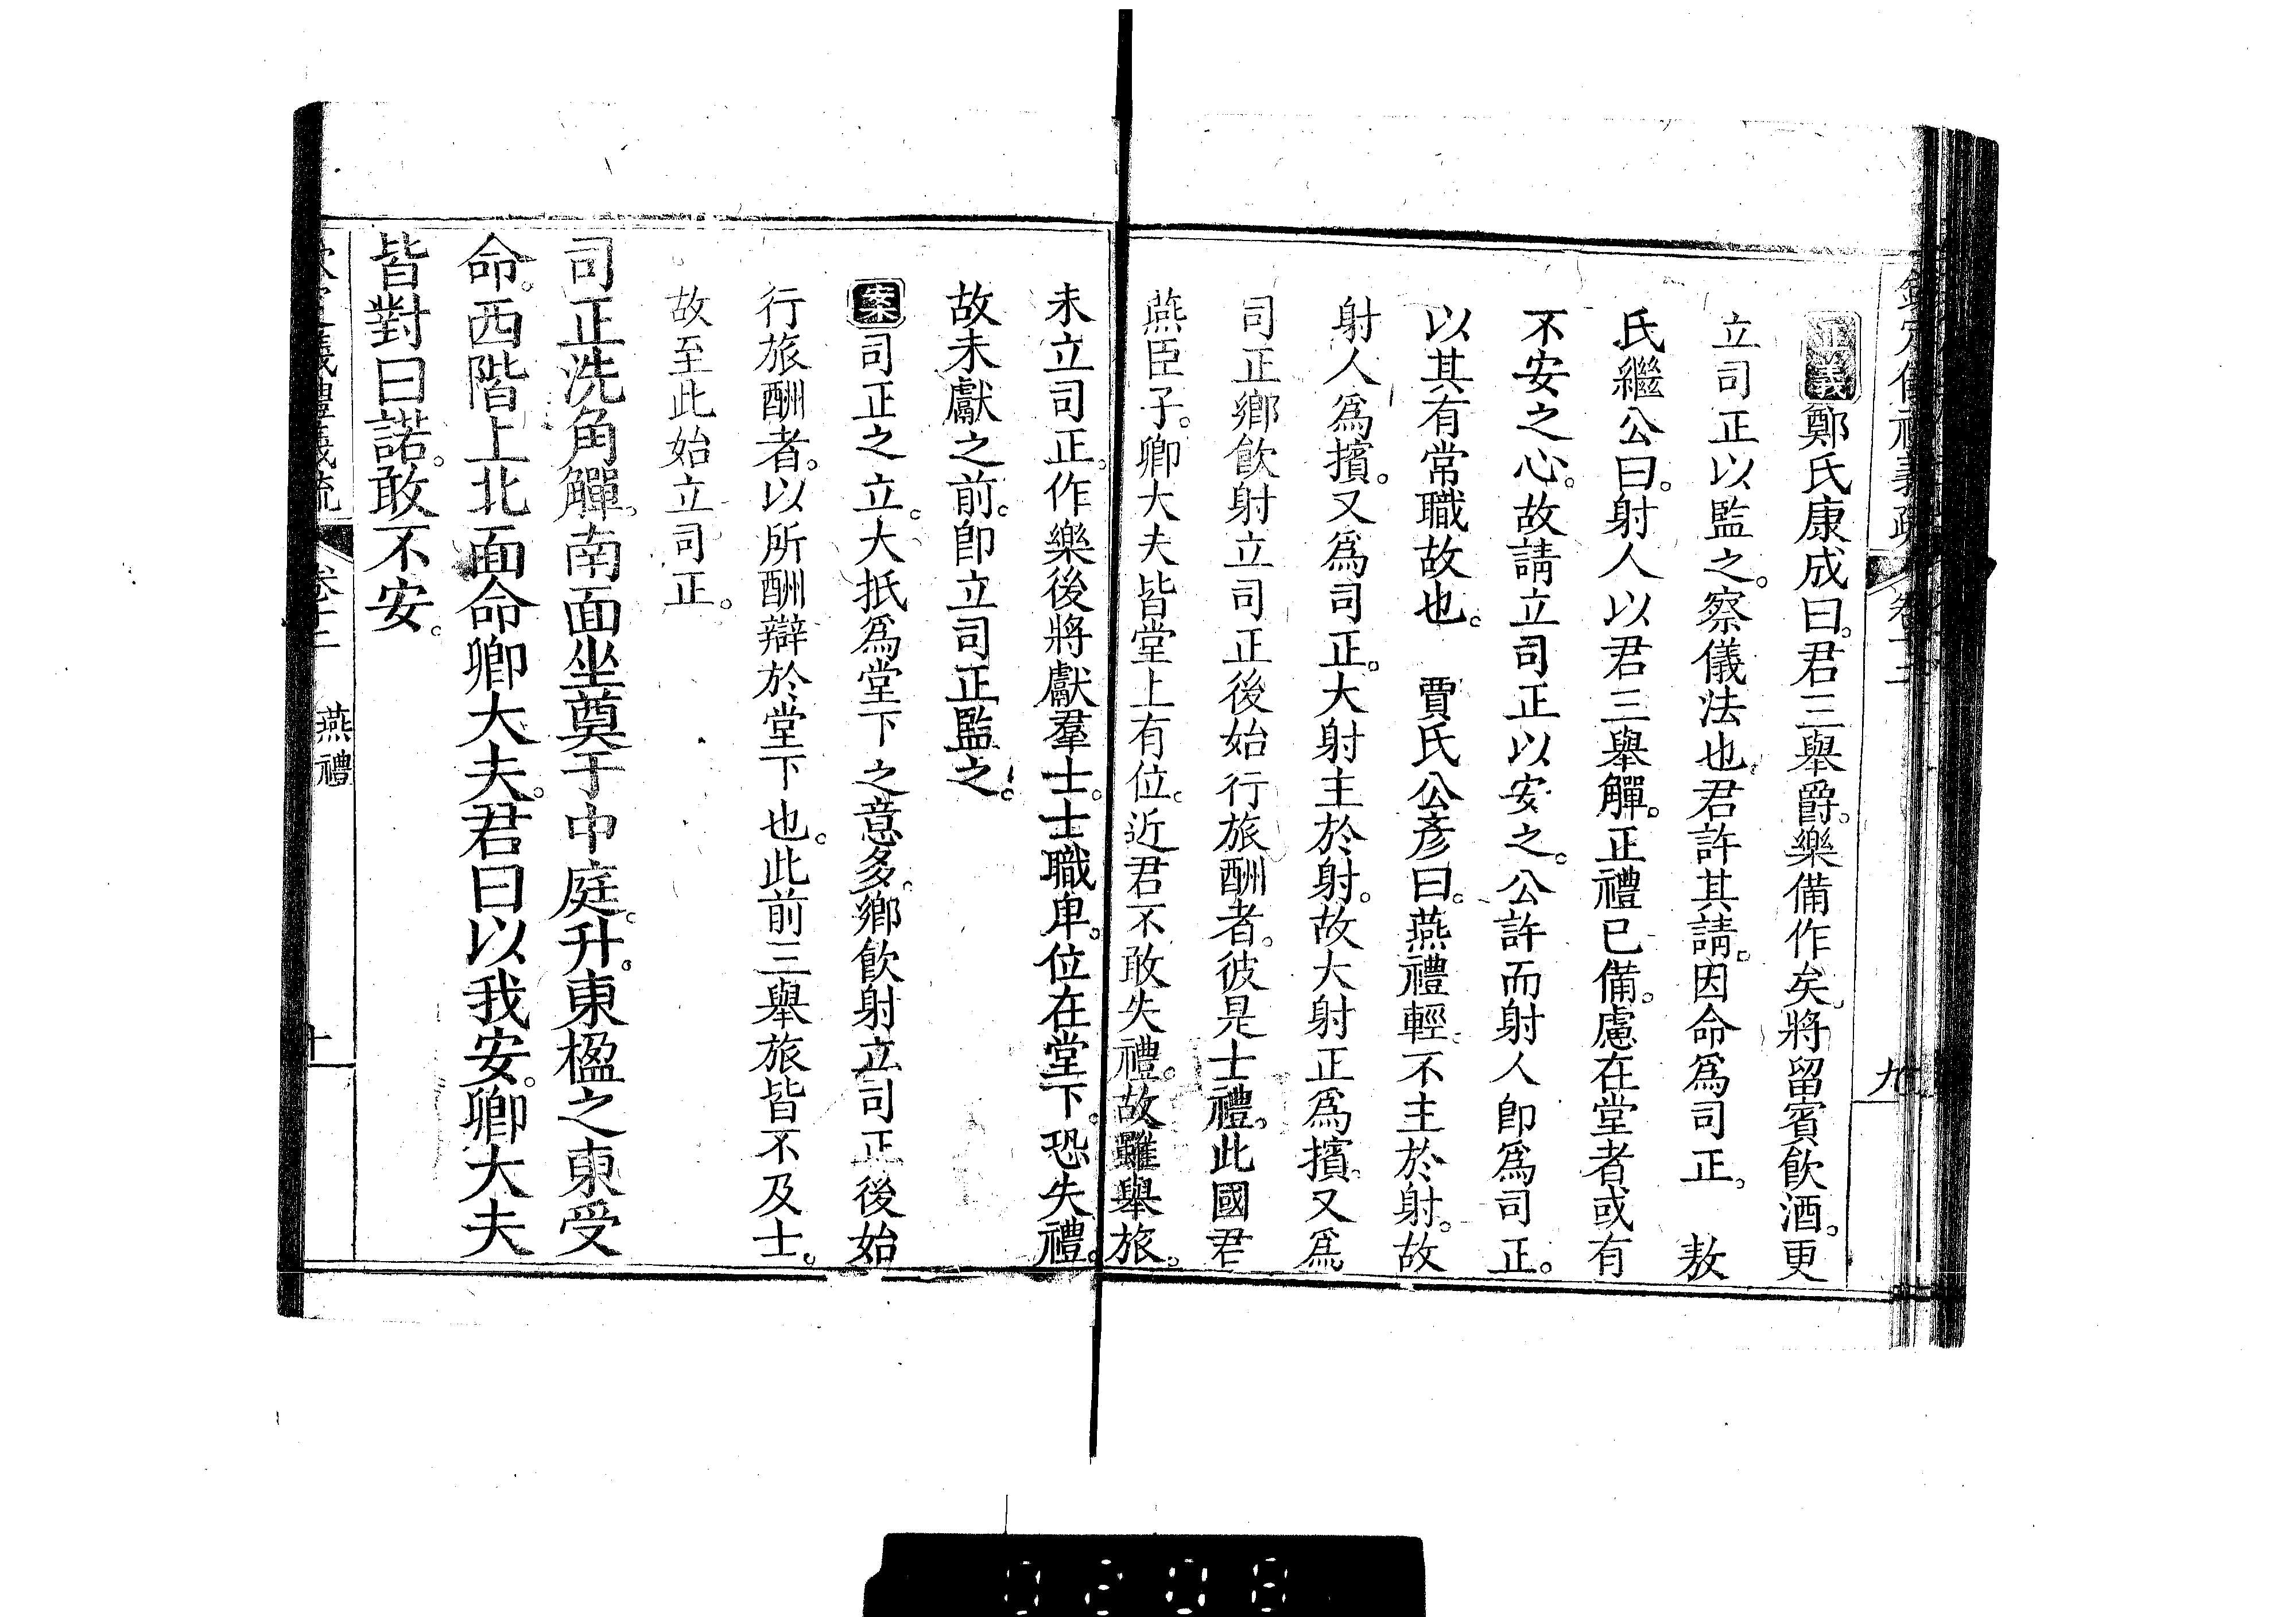 欽定儀禮義疏 卷十二 九
正義鄭氏康成曰。君三舉爵。樂備作矣。將留賓飲酒。更
立司正以監之。察儀法也。君許其請。因命爲司正。 敖
氏繼公曰。射人以君三舉觶。正禮已備。慮在堂者或有
不安之心。故請立司正以安之。公許而射人卽爲司正。
以其有常職故也。 賈氏公彥曰。燕禮輕。不主於射。故
射人爲擯。又爲司正。大射主於射。故大射正爲擯。又爲
司正鄉飮射立司正後始行旅酬者。彼是士禮。此國君
燕臣子。卿大夫皆堂上有位。近君不敢失禮。故雖舉旅。
未立司正。作樂後將獻羣士。士職卑。位在堂下。恐失禮。
故未獻之前。卽立司正監之。
案司正之立。大抵爲堂下之意多。鄉飮射立司正後始
行旅酬者。以所酬辯於堂下也。此前三舉旅皆不及士。
故至此始立司正。
司正洗角觶。南面坐奠于中庭。升。東楹之東受
命。西階上北面命卿大夫。君曰以我安。卿大夫
皆對曰諾。敢不安。
欽定儀禮義疏 卷十二 燕禮 十
0208